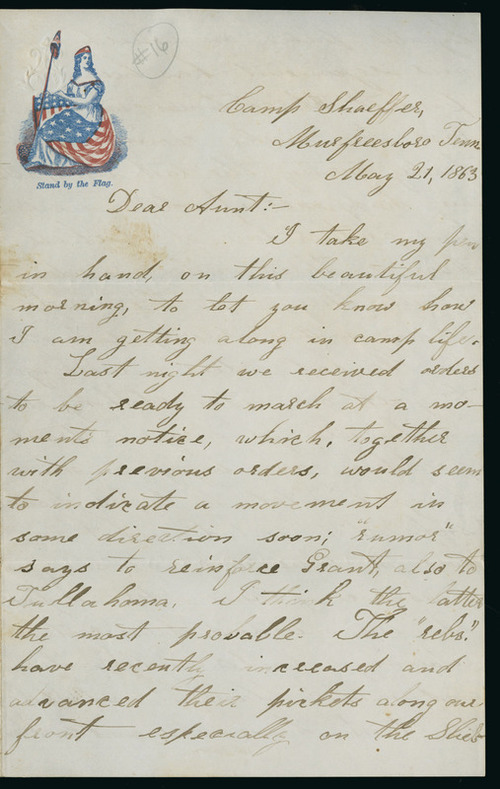 #16
Stand by the Flag.
Camp Shaeffer,
Murfreesboro Tenn
May 21, 1863
Dear Aunt:-
I take my pen
in hand, on this beautiful
morning, to let you know how
I am getting along in camp life.
Last night we received orders
to be ready to march at a mo-
ments notice, which, together
with previous orders, would seem
to indicate a movement in
some direction soon; "rumor"
says to reinforce Grant, also to
Tullahoma. I think the latter
the most probable. The "rebs."
have recently increased and
advanced their pickets along our
front especially on the Shel-